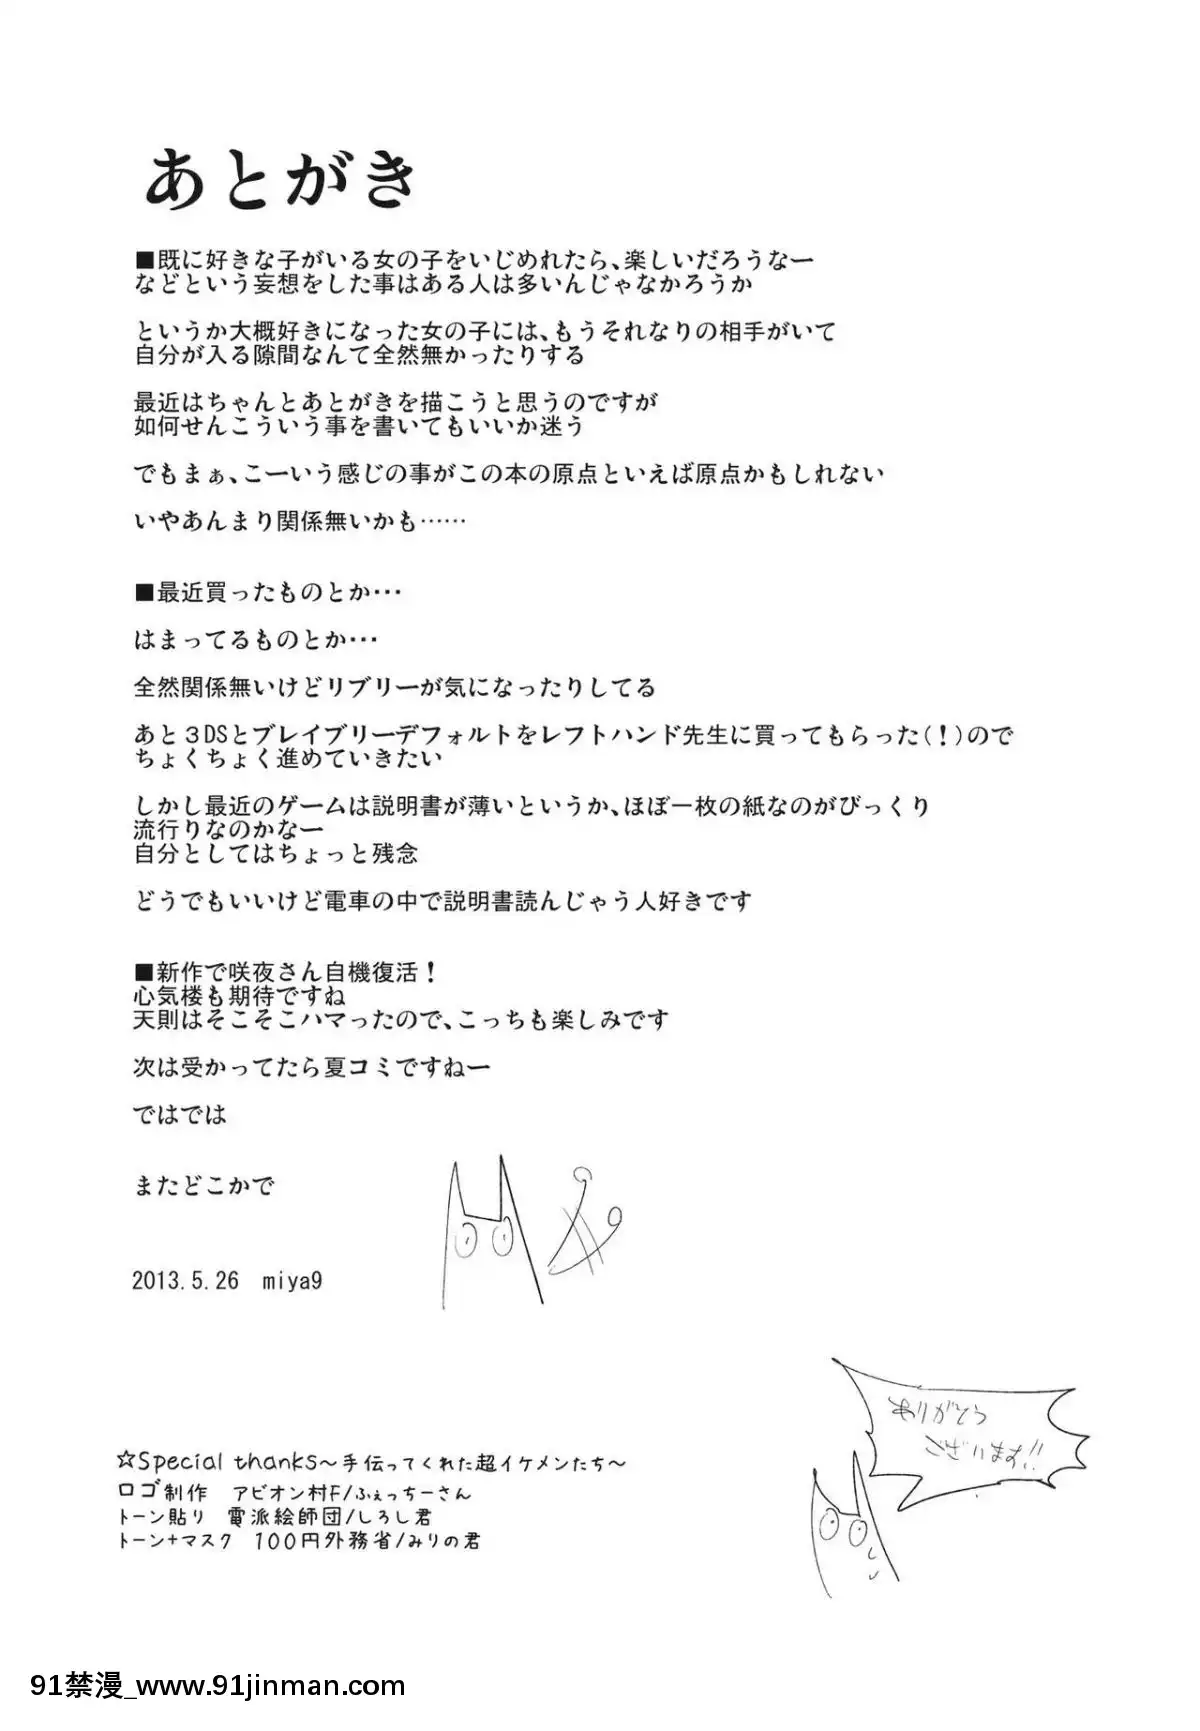 あとがき
■既に好きな子がいる女の子をいじめれたら、楽しいだろうなー
などという妄想をした事はある人は多いんじゃなかろうか
というか大概好きになった女の子には、もうそれなりの相手がいて
自分が入る隙間なんて全然無かったりする
最近はちゃんとあとがきを描こうと思うのですが
如何せんこういう事を書いてもいいか迷う
でもまぁ、こーいう感じの事がこの本の原点といえば原点かもしれない
いやあんまり関係無いかも……
■最近買ったものとか・・・
はまってるものとか・・・
全然関係無いけどリブリーが気になったりしてる
あと３DSとブレイブリーデフォルトをレフトハンド先生に買ってもらった(！)ので
ちょくちょく進めていきたい
しかし最近のゲームは説明書が薄いというか、ほぼ一枚の紙なのがびっくり
流行りなのかなー
自分としてはちょっと残念
どうでもいいけど電車の中で説明書読んじゃう人好きです
■新作で咲夜さん自機復活！
心気楼も期待ですね
天則はそこそこハマったので、こっちも楽しみです
次は受かってたら夏コミですねー
ではでは
またどこかで
2013.5.26　miya9
ありがとう
ございます!!
☆Special thanks～手伝ってくれた超イケメンたち～
ロゴ制作　アビオン村F/ふぇっちーさん
トーン貼り　電派絵師団/しろし君
トーン+マスク　100円外務省/みりの君
91禁漫_www.91jinman.com